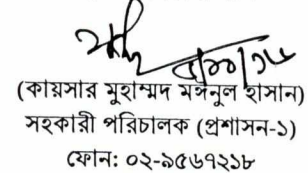 ৫/১১/১৮
(কায়সার মুহাম্মদ মঈনুল হাসান)
সহকারী পরিচালক (প্রশাসন-১)
ফোন: ০২-৯৫৬৭২১৮